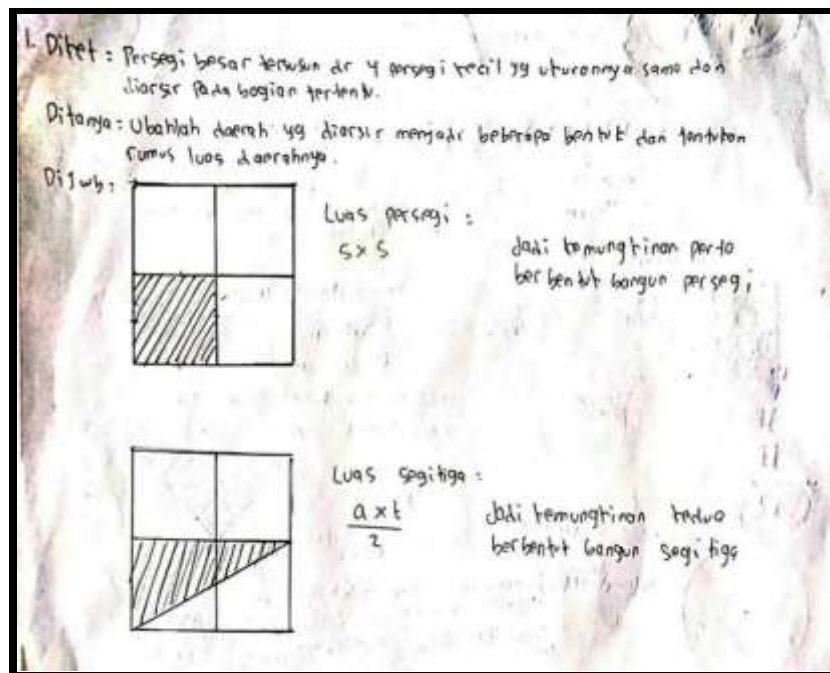 1. Diket : Persegi besar tersusun dr 4 persegi kecil yg ukurannya sama dan
diarsir pada bagian tertentu.
Ditanya : Ubahlah daerah yg diarsir menjadi beberapa bentuk dan tentukan
rumus luas daerahnya.
Dijwb :
Luas persegi :
s x s
Jadi kemungkinan
berbentuk bangun persegi
Luas segitiga :
a x t
2
Jadi kemungkinan kedua
berbentuk bangun segitiga